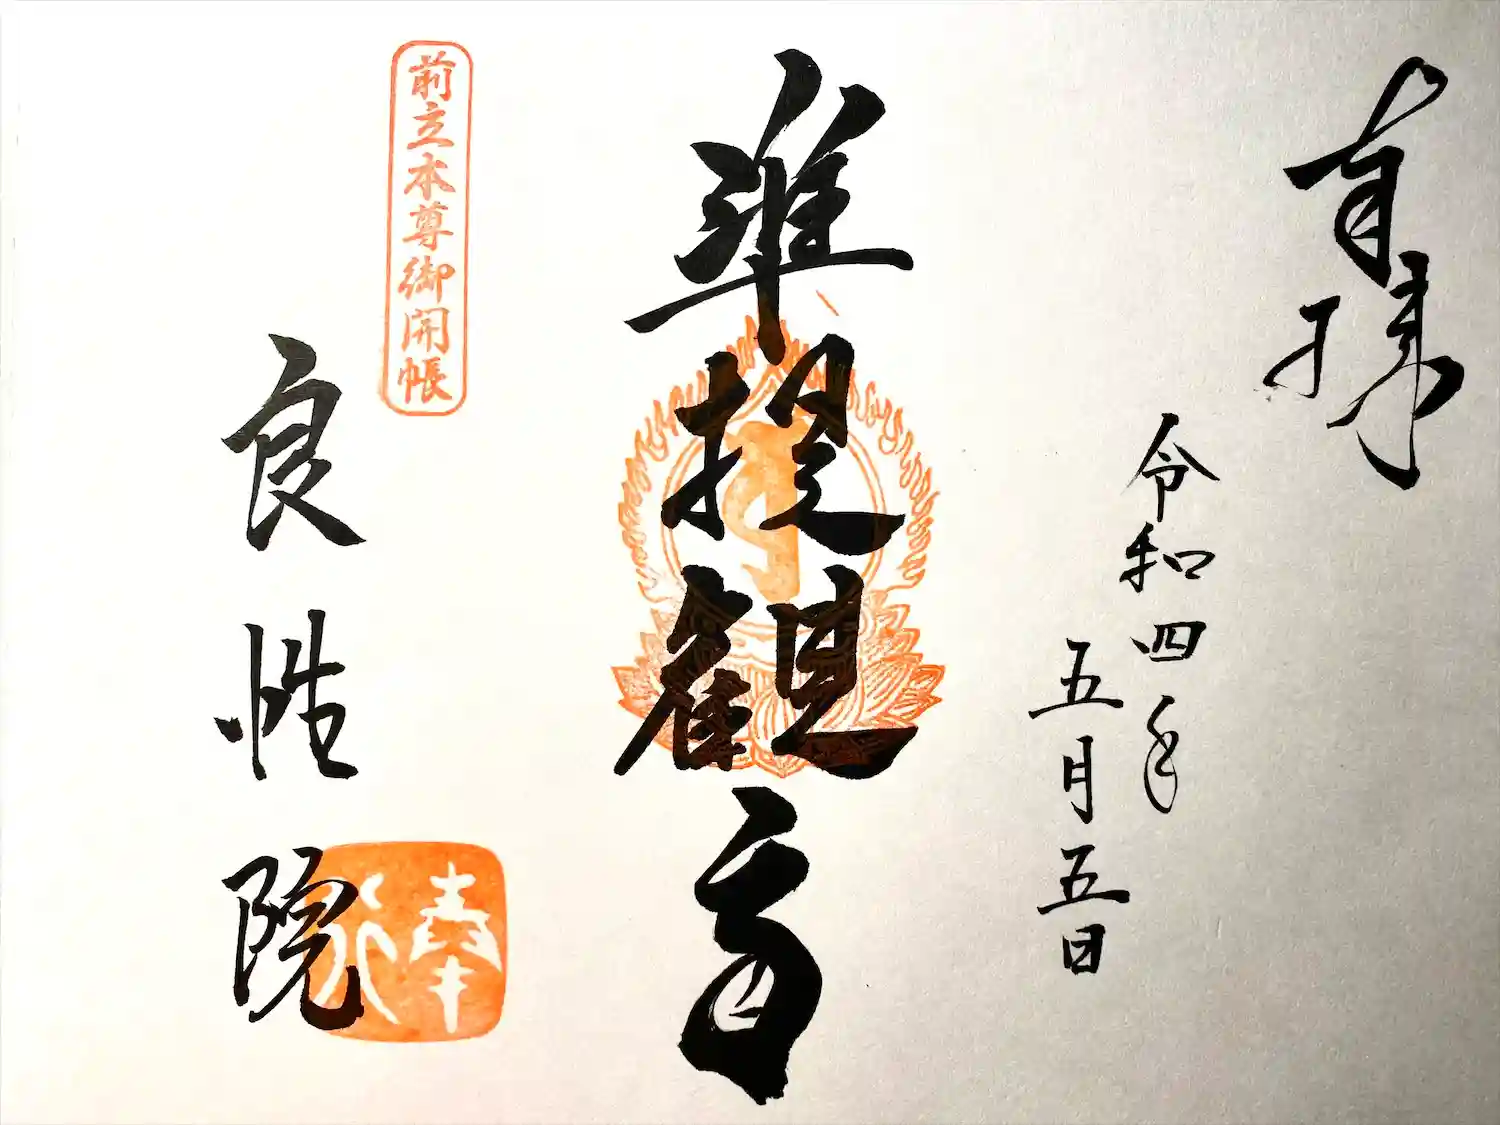 奉拝
令和四年
五月五日
準提観音
前立本尊御開帳
良性院